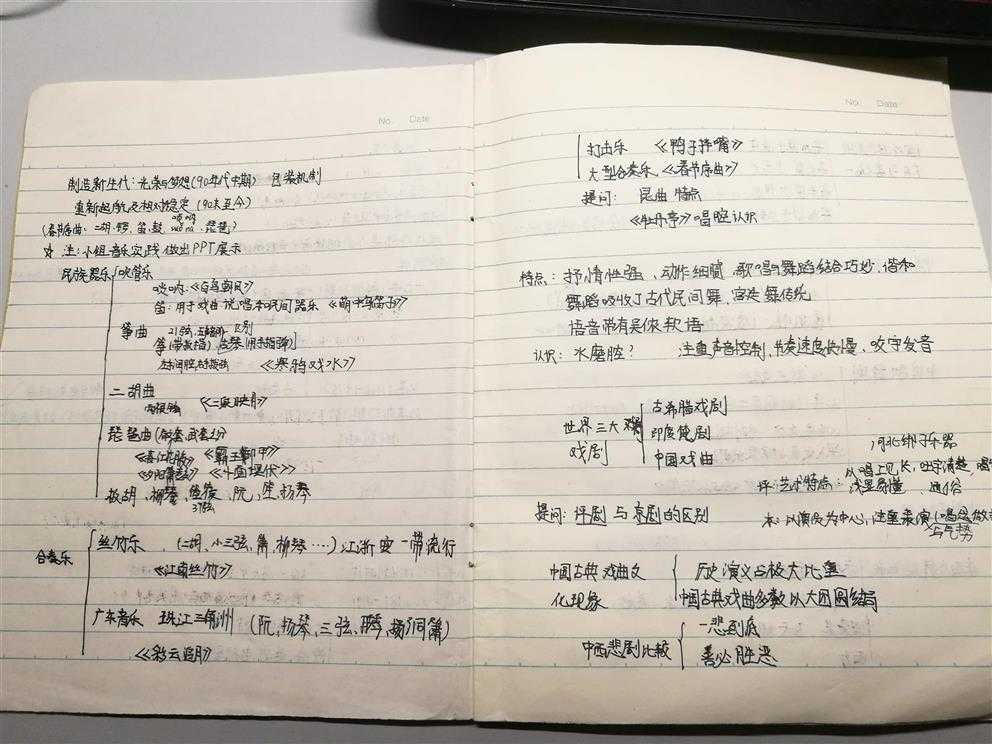 No. Date
制造新生代：光荣与梦想(90年代中期) 包装机制
重新起航及相对稳定(90末至今)
唢呐
(春节序曲：二胡、锣、笛、鼓、suona、琵琶?
☆ 注：小组音乐实践做出PPT展示
民族器乐 吹管乐
唢呐：《百鸟朝凤》
笛：用于戏曲 说唱和民间器乐 《荫中鸟笛子》
筝曲 21弦，五声 区别
筝(带教指) 古琴(用赤指弹)
《寒鸦戏水》
二胡曲
两根弦 《二泉映月》
琵琶曲(文套，武套之分
《春江花月》 《霸王卸甲》
《夕阳箫鼓》 《十面埋伏》
板胡、柳琴、箜篌、阮、笙、扬琴
37弦
合奏乐 丝竹乐 (二胡、小三弦、箫、柳琴……)江浙 一带流行
《江南丝竹》
广东音乐 珠江三角洲 (阮、扬琴、三弦、 琴、 洞箫)
《彩云追月》
No. Date
打击乐 《鸭子拌嘴》
大型合奏乐 《春节序曲》
提问： 昆曲 特点
《牡丹亭》唱腔认识
特点：抒情性强、动作细腻、歌唱与舞蹈结合巧妙、谐和
舞蹈吸收了古代民间舞、宫廷舞传统
语音带有吴侬软语
认识：水磨腔? 注重声音控制、节奏速度快慢、咬字发音
世界三大 古希腊戏剧
戏剧 印度梵剧
中国戏曲
河北绑子乐器
评：艺术特点：以唱工见长，吐字清楚，唱
浅显易懂、通俗
提问：评剧 与 京剧的区别 京：以演员为中心，注重表演(唱念做
与气势
中国古典 戏曲文 历史演义占极大比重
化现象 中国古典戏曲多数以大团圆结局
中西悲剧比较 一悲到底
善必胜恶